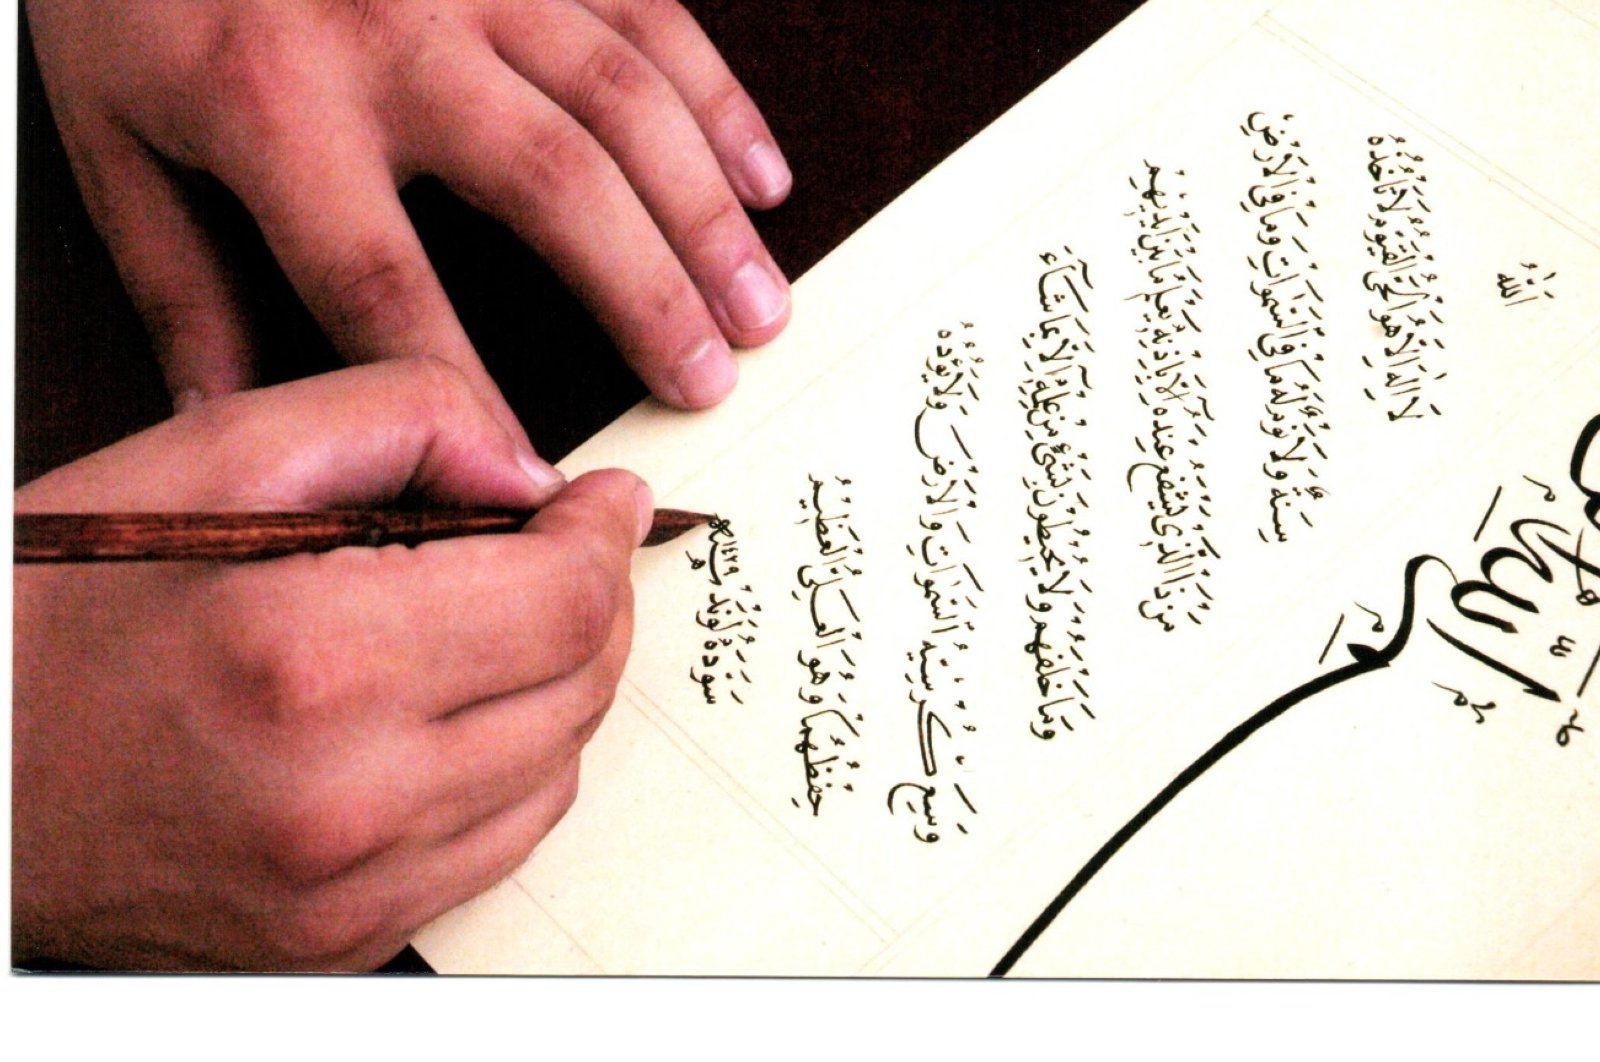 اَللّٰهُ
لَا اِلٰهَ اِلَّا هُوَ اَلْحَىُّ الْقَيُّومُ لَا تَأْخُذُهُ
سِنَةٌ وَلَا نَوْمٌ لَهُ مَا فِى السَّمٰوَاتِ وَمَا فِى الْاَرْضِ
مَنْ ذَا الَّذِى يَشْفَعُ عِنْدَهُ اِلَّا بِاِذْنِهِ يَعْلَمُ مَا بَيْنَ اَيْدِيْهِمْ
وَمَا خَلْفَهُمْ وَلَا يُحِيطُونَ بِشَىْءٍ مِنْ عِلْمِهِ اِلَّا بِمَا شَآءَ
وَسِعَ كُرْسِيُّهُ السَّمٰوَاتِ وَالْاَرْضَ وَلَا يَؤُدُهُ
حِفْظُهُمَا وَهُوَ الْعَلِىُّ الْعَظِيْمُ
سوده ١٤٢٩ ھ